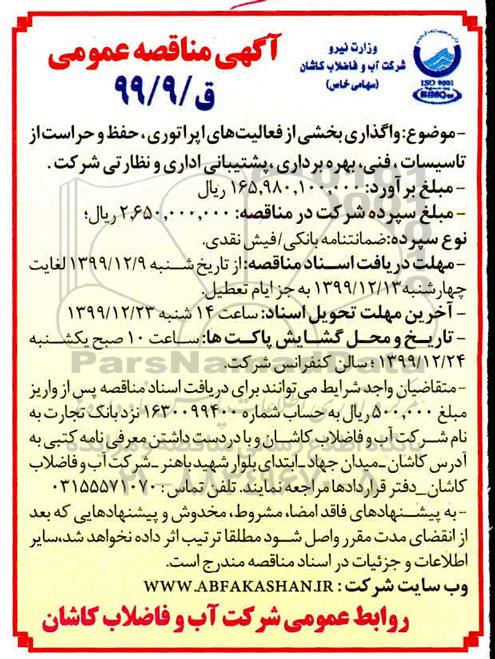 آگهی مناقصه عمومی
ق/۹/۹۹
وزارت نیرو
شرکت آب و فاضلاب کاشان
(سهامی خاص)
ISO 9001
-موضوع: واگذاری بخشی از فعالیت‌های اپراتوری، حفظ و حراست از
تاسیسات، فنی، بهره برداری، پشتیبانی اداری و نظارتی شرکت.
-مبلغ برآورد: ۱۶۵,۹۸۰,۱۰۰,۰۰۰ ریال
-مبلغ سپرده شرکت در مناقصه: ۲,۶۵۰,۰۰۰,۰۰۰ ریال؛
نوع سپرده: ضمانتنامه بانکی/فیش نقدی.
-مهلت دریافت اسناد مناقصه: از تاریخ شنبه ۱۳۹۹/۱۲/۹ لغایت
چهارشنبه ۱۳۹۹/۱۲/۱۳ به جز ایام تعطیل.
-آخرین مهلت تحویل اسناد: ساعت ۱۴ شنبه ۱۳۹۹/۱۲/۲۳
-تاریخ و محل گشایش پاکت ها: ساعت ۱۰ صبح یکشنبه
۱۳۹۹/۱۲/۲۴؛ سالن کنفرانس شرکت.
-متقاضیان واجد شرایط می‌توانند برای دریافت اسناد مناقصه پس از واریز
مبلغ ۵۰۰,۰۰۰ ریال به حساب شماره ۱۶۳۰۰۹۹۴۰۰ نزد بانک تجارت به
نام شرکت آب و فاضلاب کاشان و با در دست داشتن معرفی نامه کتبی به
آدرس کاشان_میدان جهاد_ابتدای بلوار شهید باهنر_شرکت آب و فاضلاب
کاشان_دفتر قراردادها مراجعه نمایند. تلفن تماس: ۰۳۱۵۵۵۷۱۰۷۰
-به پیشنهادهای فاقد امضا، مشروط، مخدوش و پیشنهادهایی که بعد
از انقضای مدت مقرر واصل شود مطلقا ترتیب اثر داده نخواهد شد، سایر
اطلاعات و جزئیات در اسناد مناقصه مندرج است.
وب سایت شرکت: WWW.ABFAKASHAN.IR
روابط عمومی شرکت آب و فاضلاب کاشان
ParsNamadData